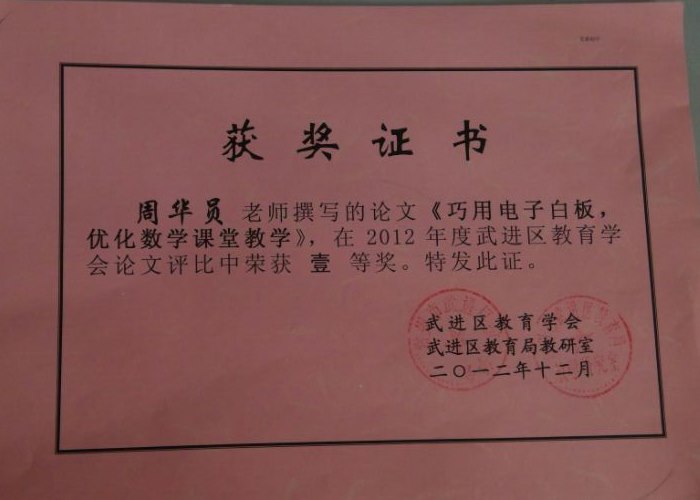 获奖证书
周华员 老师撰写的论文《巧用电子白板，
优化数学课堂教学》，在 2012 年度武进区教育学
会论文评比中荣获 壹 等奖。特发此证。
武进区教育学会
武进区教育局教研室
二〇一二年十二月